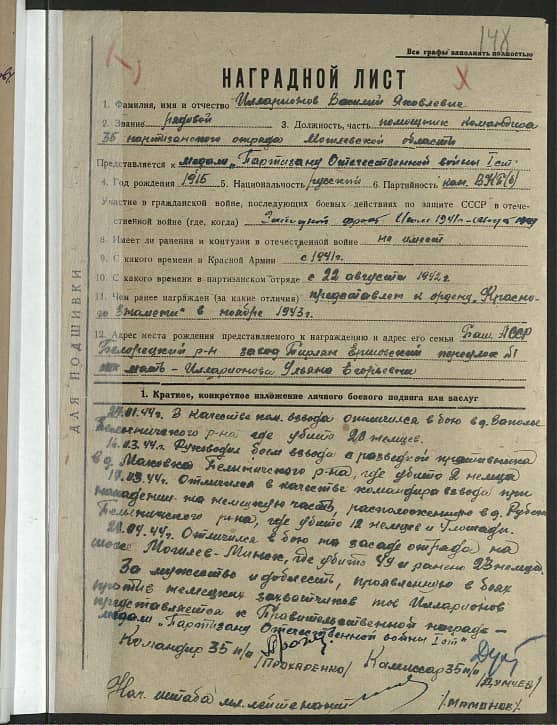 148
Все графы заполнять полностью
НАГРАДНОЙ ЛИСТ
1. Фамилия, имя и отчество Илларионов Василий Яковлевич
2. Звание рядовой 3. Должность, часть помощник командира
35 партизанского отряда Могилевской области
Представляется к медали „Партизану Отечественной войны I ст."
4. Год рождения 1915 5. Национальность русский 6. Партийность кан. ВКП(б)
Участие в гражданской войне, последующих боевых действиях по защите СССР в отече-
ственной войне (где, когда) Западной фронт 1941
8. Имеет ли ранения и контузии в отечественной войне не имеет
9. С какого времени в Красной Армии с 1941г.
10. С какого времени в партизанском отряде с 22 августа 1942г.
11. Чем ранее награжден (за какие отличия) представлен к ордену „Красно-
го Знамени" в ноябре 1943г.
12. Адрес места рождения представляемого к награждению и адрес его семьи Баш. АССР
Белорецкий р-н завод Тирлян поселок №1
мать - Илларионова Ульяна Егорьевна
ДЛЯ ПОДШИВКИ
1. Краткое, конкретное изложение личного боевого подвига или заслуг
01.44г. В качестве ком. взвода отличился в бою в д.
Белыничского р-на где убито 20 немцев.
03.44г. Руководил боем взвода с разведкой противника
в д. Маковка Белыничского р-на, где убито 2 немца
03.44г. Отличился в качестве командира взвода при
нападении на немецкую часть, расположенную в д.
Белыничского р-на, где убито 12 немцев и лошади.
04.44г. Отличился в бою на засаде отряда на
шоссе Могилев-Минск, где убито 49 и ранено 23 немца.
За мужество и доблесть, проявленную в боях
против немецких захватчиков тов Илларионов
представляется к Правительственной награде -
медали „Партизану Отечественной войны I ст"
Командир 35 п/о Комиссар 35 п/о
/Прохаренко/ /Думчев/
Нач. штаба мл. лейтенант /Мамонов/